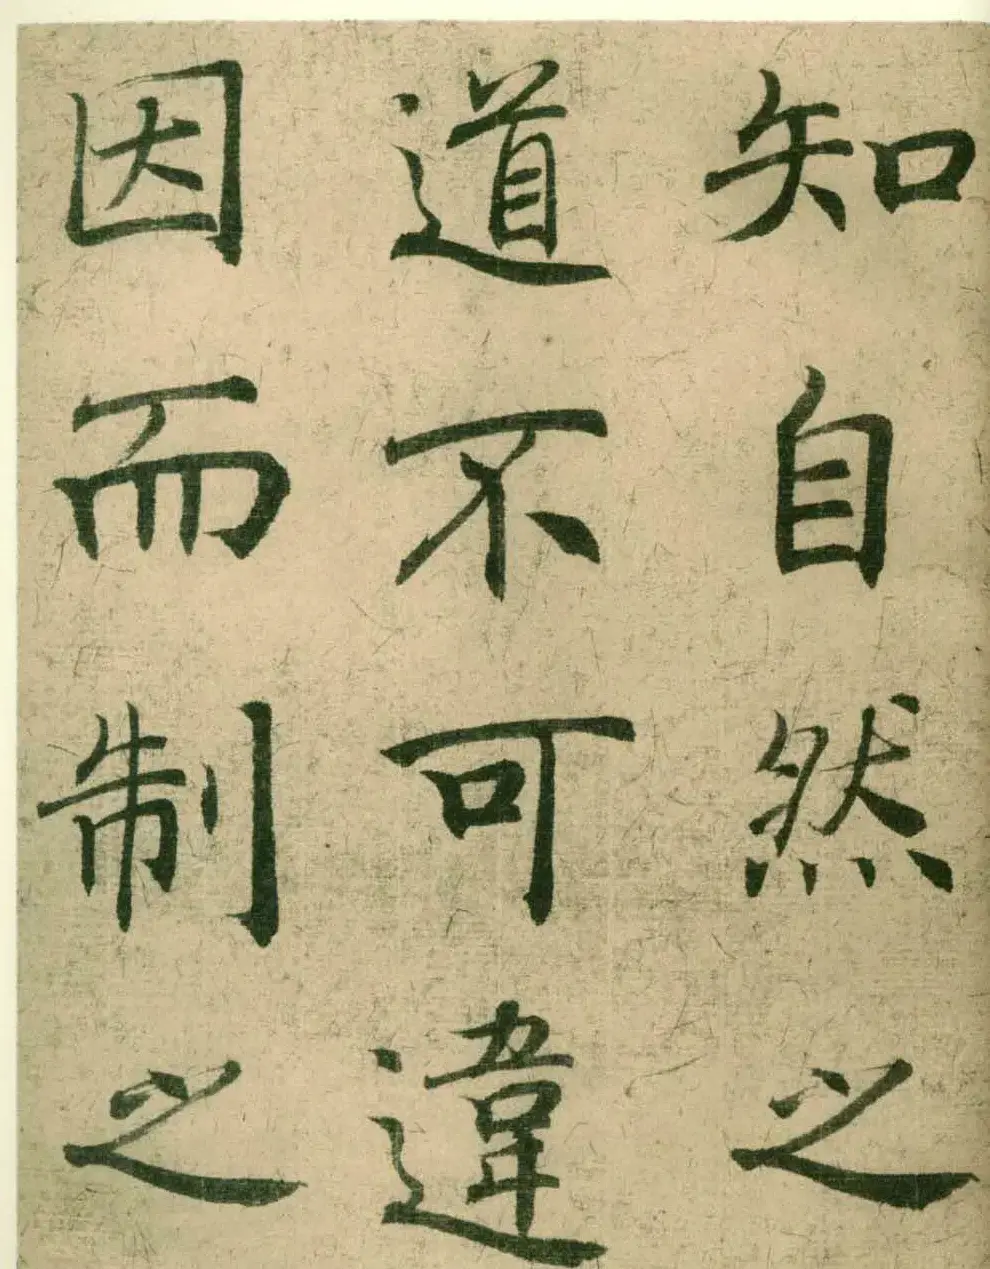 知自然之
道不可違
因而制之